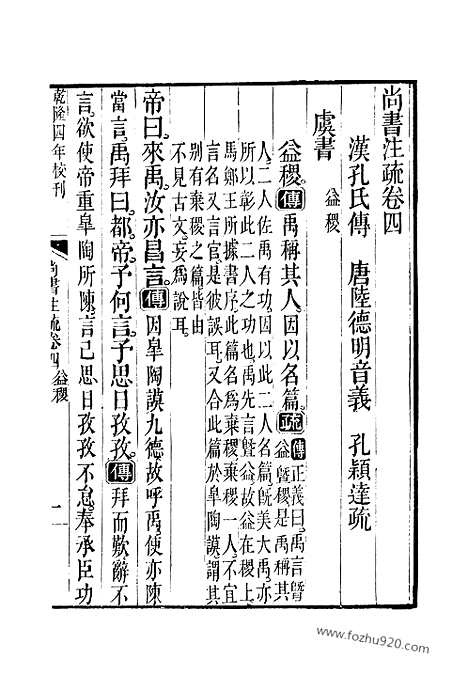 尚書注疏卷四
漢孔氏傳　唐陸德明音義　孔穎達疏
虞書
益稷
益稷。傳禹稱其人。因以名篇。疏傳正義曰。禹言暨
益暨稷是禹稱其
人。二人佐禹有功。因以此二人名篇。旣美大禹。亦
所以彰此二人之功也。禹先言暨益。故益在稷上。
馬鄭王所據書序。此篇名爲棄稷。棄稷一人。不宜
言名又言官。是彼誤耳。又合此篇於皐陶謨。謂其
別有棄稷之篇。皆由
不見古文。妄爲說耳。
帝曰。來禹。汝亦昌言。傳因皐陶謨九德。故呼禹。使亦陳
當言。禹拜曰。都。帝。予何言。予思日孜孜。傳拜而歎。辭不
言。欲使帝重皐陶所陳。言己思日孜孜不怠。奉承臣功
乾隆四年校刊
尚書注疏卷四 益稷
一
www.fozhu920.com